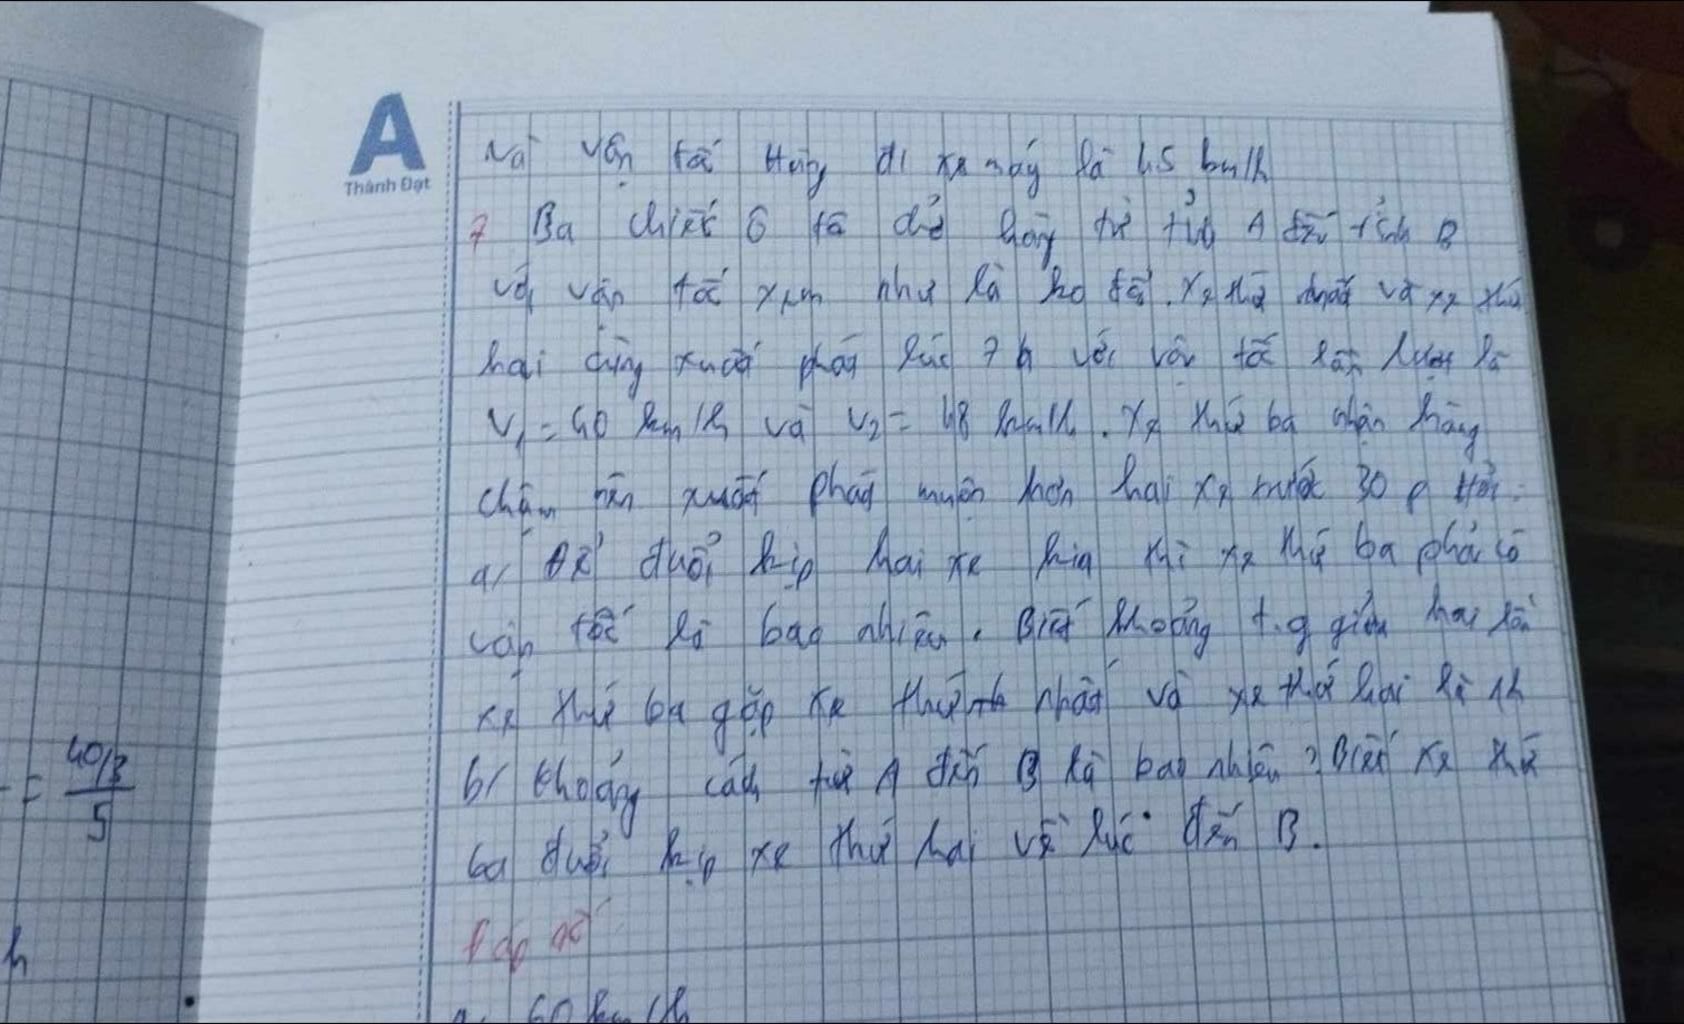 A
Thành Đạt
Và vận tốc Hùng đi xe máy là 45 km/h
7 Ba chiếc ô tô chở hàng từ tỉnh A đến tỉnh B
với vận tốc xem như là ko đổi. Xe thứ nhất và xe thứ
hai cùng xuất phát lúc 7 h với vận tốc lần lượt là
V₁ = 40 km/h và V₂ = 48 km/h. Xe thứ ba nhận hàng
chậm nên xuất phát muộn hơn hai xe trước 30 p Hỏi:
a/ Để đuổi kịp hai xe kia thì xe thứ ba phải có
vận tốc là bao nhiêu. Biết khoảng t.g giữa hai lần
xe thứ ba gặp xe thứ nhất và xe thứ hai là 1h
b/ Khoảng cách từ A đến B là bao nhiêu? Biết xe thứ
ba đuổi kịp xe thứ hai về lúc đến B.
Đáp số
a. 60 km/h
= 40/3
5
h